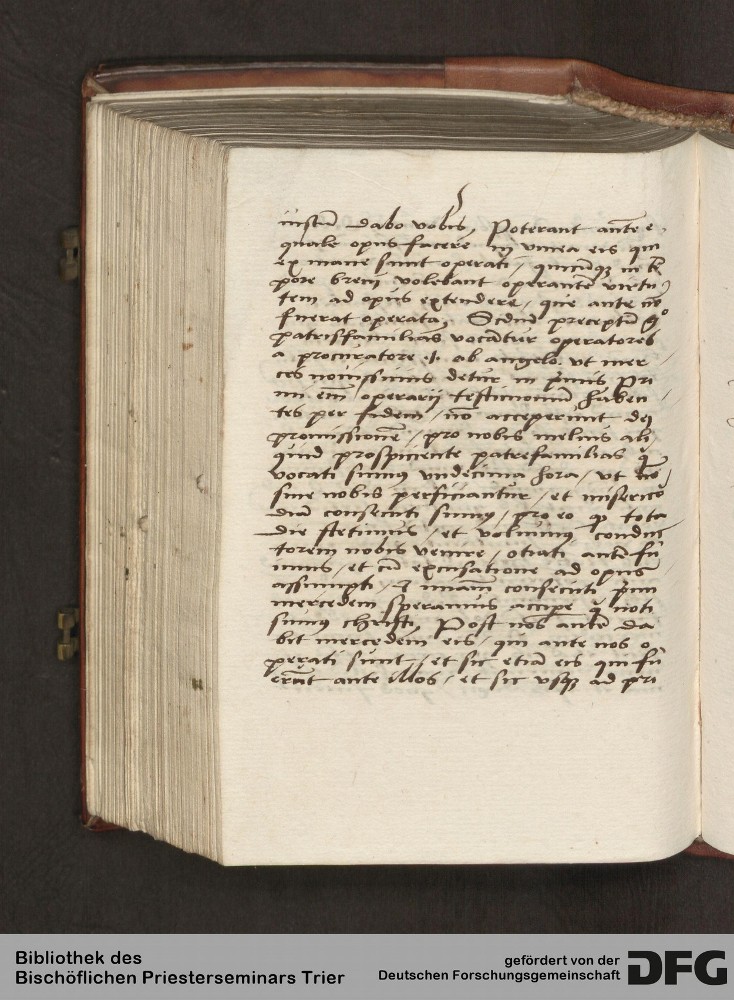 iustũ dabo vobis, Poterant ante e,
quale opus facere in vinea eis qui
ex mane sunt operati, quicũqꝫ in tẽ
pore brevi volebant operante virtu
tem ad opus extendere, que ante nõ
fuerat operata, Scdũ preceptũ gͦ
patrisfamilias vocãtur operatores
a procuratore .i. ab angelo vt mer
ces novissimis detur in p̃mis Pri
mi em̃ operarij testimoniũ haben
tes per fidem, nõ acceperunt dej
promissionẽ, pro nobis melius ali
quid prospiciente patrefamilias q̃
vocati sumꝰ vndecima hora, vt nõ
sine nobis perficiantur, et miserico
diã consecuti sumꝰ, pro eo qͥ tota
die stetimus, et volumꝰ condu
torem nobis venire, otiati autẽ fu
imus, et cũ excusatione ad opus
assumpti, consecuti p̃m
mercedem speramus accipe q̃ noti
sumꝰ christi, Post nos autẽ da
bit mercedem eis, qui ante nos o
perati sunt, et sic etiã eis qui fu
erũt ante illos, et sic vsqꝫ ad pri
Bibliothek des
Bischöflichen Priesterseminars Trier
gefördert von der
Deutschen Forschungsgemeinschaft
DFG